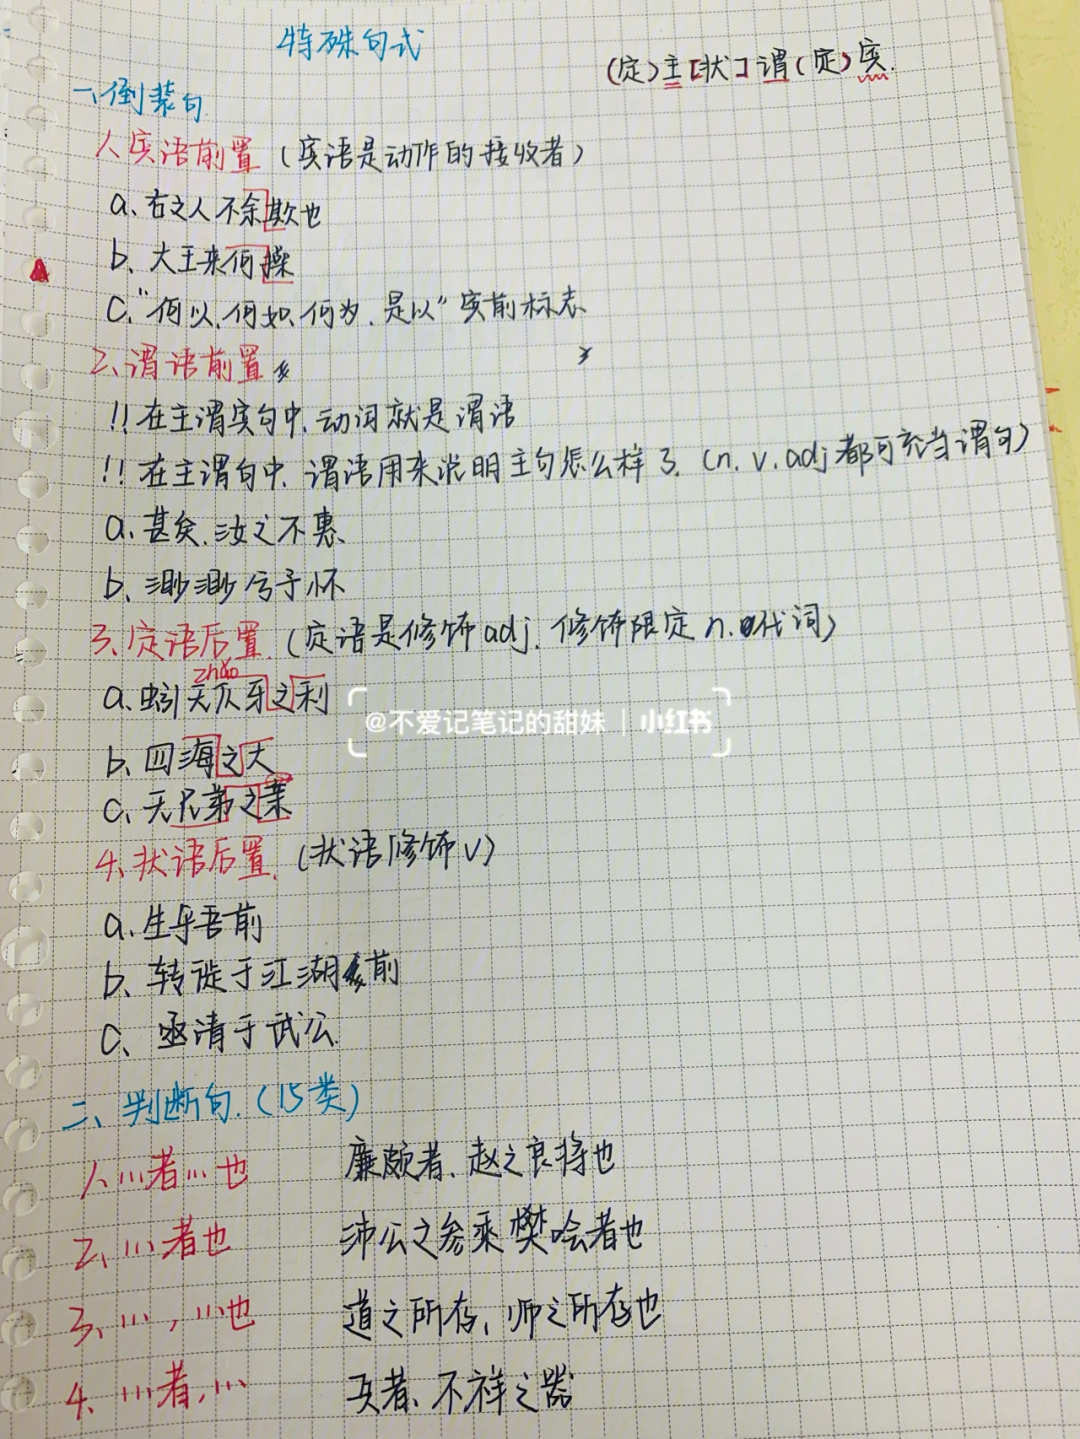 特殊句式
(定)主[状]谓(定)宾.
一、倒装句
1、宾语前置（宾语是动作的接收者）
a、古之人不余欺也
b、大王来何操
c、"何以、何如、何为、是以"宾前标志
2、谓语前置
!!在主谓宾句中,动词就是谓语
!!在主谓句中,谓语用来说明主句怎么样了.（n.v.adj都可充当谓句）
a、甚矣.汝之不惠
b、渺渺兮予怀
3、定语后置（定语是修饰adj.修饰限定n.代词）
zhǎo
a、蚓无爪牙之利
@不爱记笔记的甜妹 | 小红书
b、四海之大
c、无兄弟之
4、状语后置.（状语修饰v）
a、生乎吾前
b、转徙于江湖前
c、亟请于武公.
二、判断句.（15类）
1、…者…也 廉颇者、赵之良将也
2、…者也 沛公之参乘樊哙者也
3、…，…也 道之所存、师之所存也
4、…者，… 兵者、不祥之器